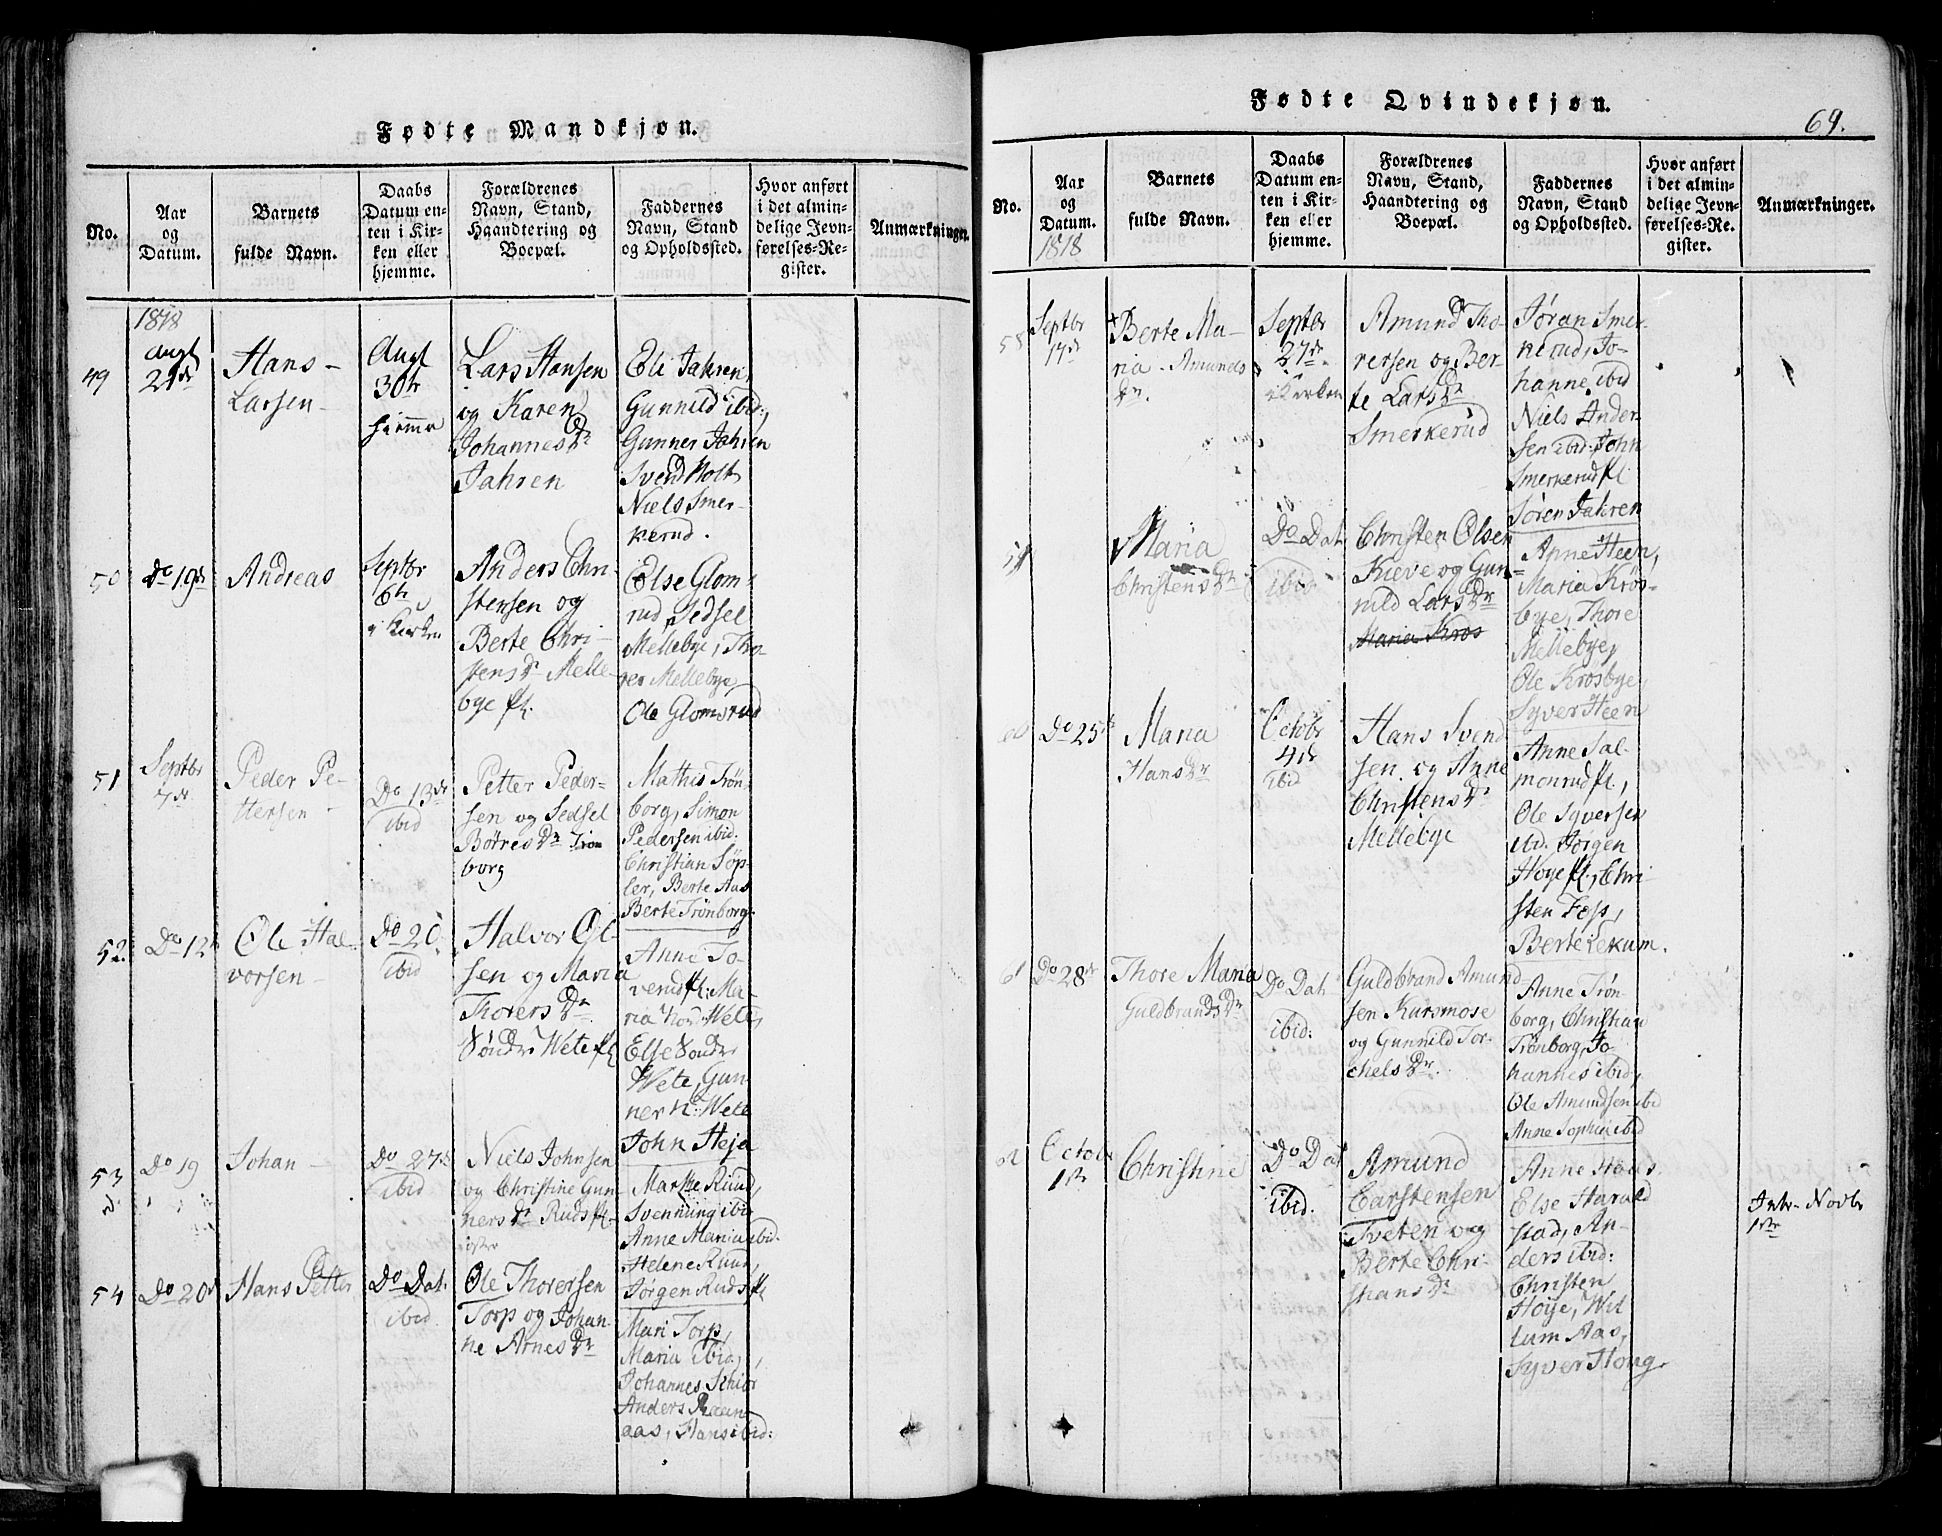 Fødte Mandkjøn.
No.
Aar
og
Datum.
Barnets
fulde Navn.
Daabs
Datum en-
ten i Kir-
ken eller
hjemme.
Forældrenes
Navn, Stand,
Haandtering og
Boepæl.
Faddernes
Navn, Stand
og Opholdssted.
Hvor anført
i det almin-
delige Jevn-
førelses-Re-
gister.
Anmærkninger.
49
1818
Augt
21de
Hans
Larsen
Augt
30te
hiemme
Lars Hansen
og Karen
Johannes Dr
Jahren
Eli Jahren,
Gunnild ibid:,
Gunner Jahren
Svend Holt
Niels Smer-
kerud.
50
Do 19de
Andreas
Septbr
6te
i Kirken
Anders Chri-
stensen og
Berte Chri-
stens Dr Melle-
bye pl.
Else Glom-
rud, Sedsel
Mellebye, Tho-
rer Mellebye
Ole Glomsrud
51
Septbr
7de
Peder Pe-
ttersen
Do 13de
ibid
Petter Peder-
sen og Sedsel
Børres Dr Trøn
borg
Mathis Trøn-
borg, Simon
Pedersen ibid.
Christian Søp-
ler, Berte Aas
Berte Trønborg.
52.
Do 12te
Ole Hal-
vorsen
Do 20
ibid
Halvor Ol-
sen og Maria
Thorers Dr
Søndre Wete pl
Anne To-
verud pl: Ma-
ria Nord Wete,
Else Søndre
Wete, Gun-
ner N: Wete
John Heja
53
Do 19
Johan
Do 27de
ibid
Niels Johnsen
og Christine Gun-
ners Dr Ruds pl.
Marthe Ruud,
Svennung ibid
Anne Maria ibid.
Helene Ruud,
Jørgen Ruds pl
54
Do 20de
Hans Petter
Do Dat.
ibid.
Ole Thorersen
Torp og Johan-
ne Arnes Dr
Mari Torp,
Maria ibid.,
Johannes Schiør
Anders Raen-
aas, Hans ibid:
Fødte Qvindekjøn.
69.
No.
Aar
og
Datum.
1818
Barnets
fulde Navn.
Daabs
Datum en-
ten i Kir-
ken eller
hjemme.
Forældrenes
Navn, Stand,
Haandtering og
Boepæl.
Faddernes
Navn, Stand
og Opholdssted.
Hvor anført
i det almin-
delige Jevn-
førelses-Re-
gister.
Anmærkninger.
58
Septbr
17de
Berte Ma-
ria Amunds
Dr.
Septbr
27de
i Kirken
Amund Tho-
rersen og Ber-
te Lars Dr
Smerkerud
Jøran Smer-
kerud, Jo-
hanne ibid
Niels Ander-
sen ibid. John
Smerkerud pl
Søren Jahren
59
Maria
Christens Dr
Do Dat
ibid
Christen Olsen
Kieve og Gun-
nild Lars Dr
Maria Kros
Anne Heen,
Maria Krøs-
bye, Thore
Mellebye,
Ole Krosbye,
Syver Heen
60
Do 25de
Maria
Hans Dr
Octobr
4de
ibid
Hans Svend
sen og Anne
Christens Dr
Mellebye
Anne Sal-
monrud pl.,
Ole Syversen
ibid. Jørgen
Høye pl., Chri
sten Foss,
Berte Lekum.
61
Do 28de
Thore Maria
Guldbrands Dr
Do Dat.
ibid:
Guldbrand Amund-
sen Kursmose
og Gunnild Tor-
chels Dr.
Anne Trøn-
borg, Christian
Trønborg, Jo-
hannes ibid,
Ole Amundsen ibid
Anne Sophia ibid
62
Octobr
1ste
Christine
Do Dat
ibid.
Amund
Carstensen
Tveten og
Berte Chri-
stians Dr
Anne Haas,
Else Harald
stad, An-
ders ibid:
Christen
Høye, Wil
lum Aas,
Syver Houg.
Intr. Novbr
1ste